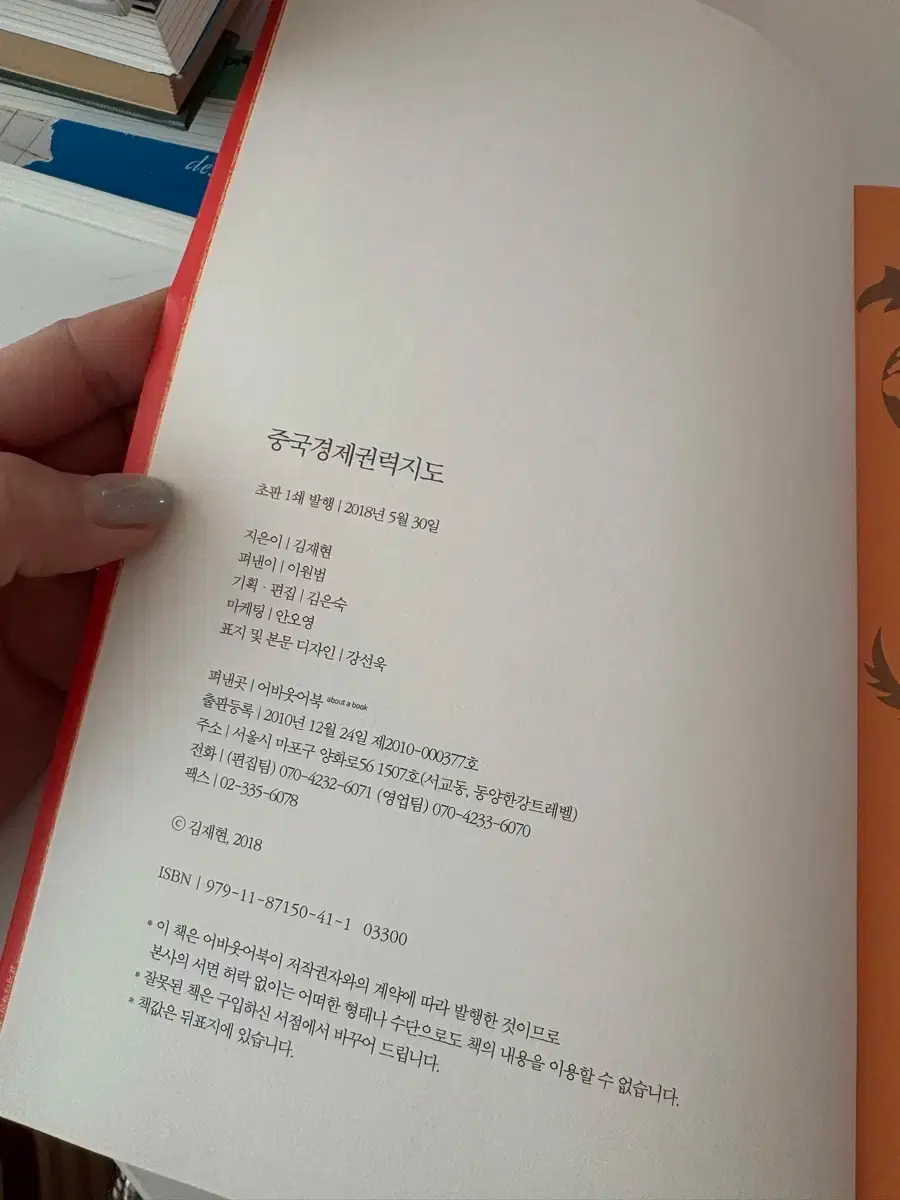 de
중국경제권력지도
초판 1쇄 발행 | 2018년 5월 30일
지은이 | 김재현
펴낸이 | 이원범
기획 · 편집 | 김은숙
마케팅 | 안오영
표지 및 본문 디자인 | 강선욱
펴낸곳 | 어바웃어북 about a book
출판등록 | 2010년 12월 24일 제2010-000377호
주소 | 서울시 마포구 양화로56 1507호(서교동, 동양한강트레벨)
전화 | (편집팀) 070-4232-6071 (영업팀) 070-4233-6070
팩스 | 02-335-6078
ⓒ 김재현, 2018
ISBN | 979-11-87150-41-1 03300
* 이 책은 어바웃어북이 저작권자와의 계약에 따라 발행한 것이므로
본사의 서면 허락 없이는 어떠한 형태나 수단으로도 책의 내용을 이용할 수 없습니다.
* 잘못된 책은 구입하신 서점에서 바꾸어 드립니다.
* 책값은 뒤표지에 있습니다.